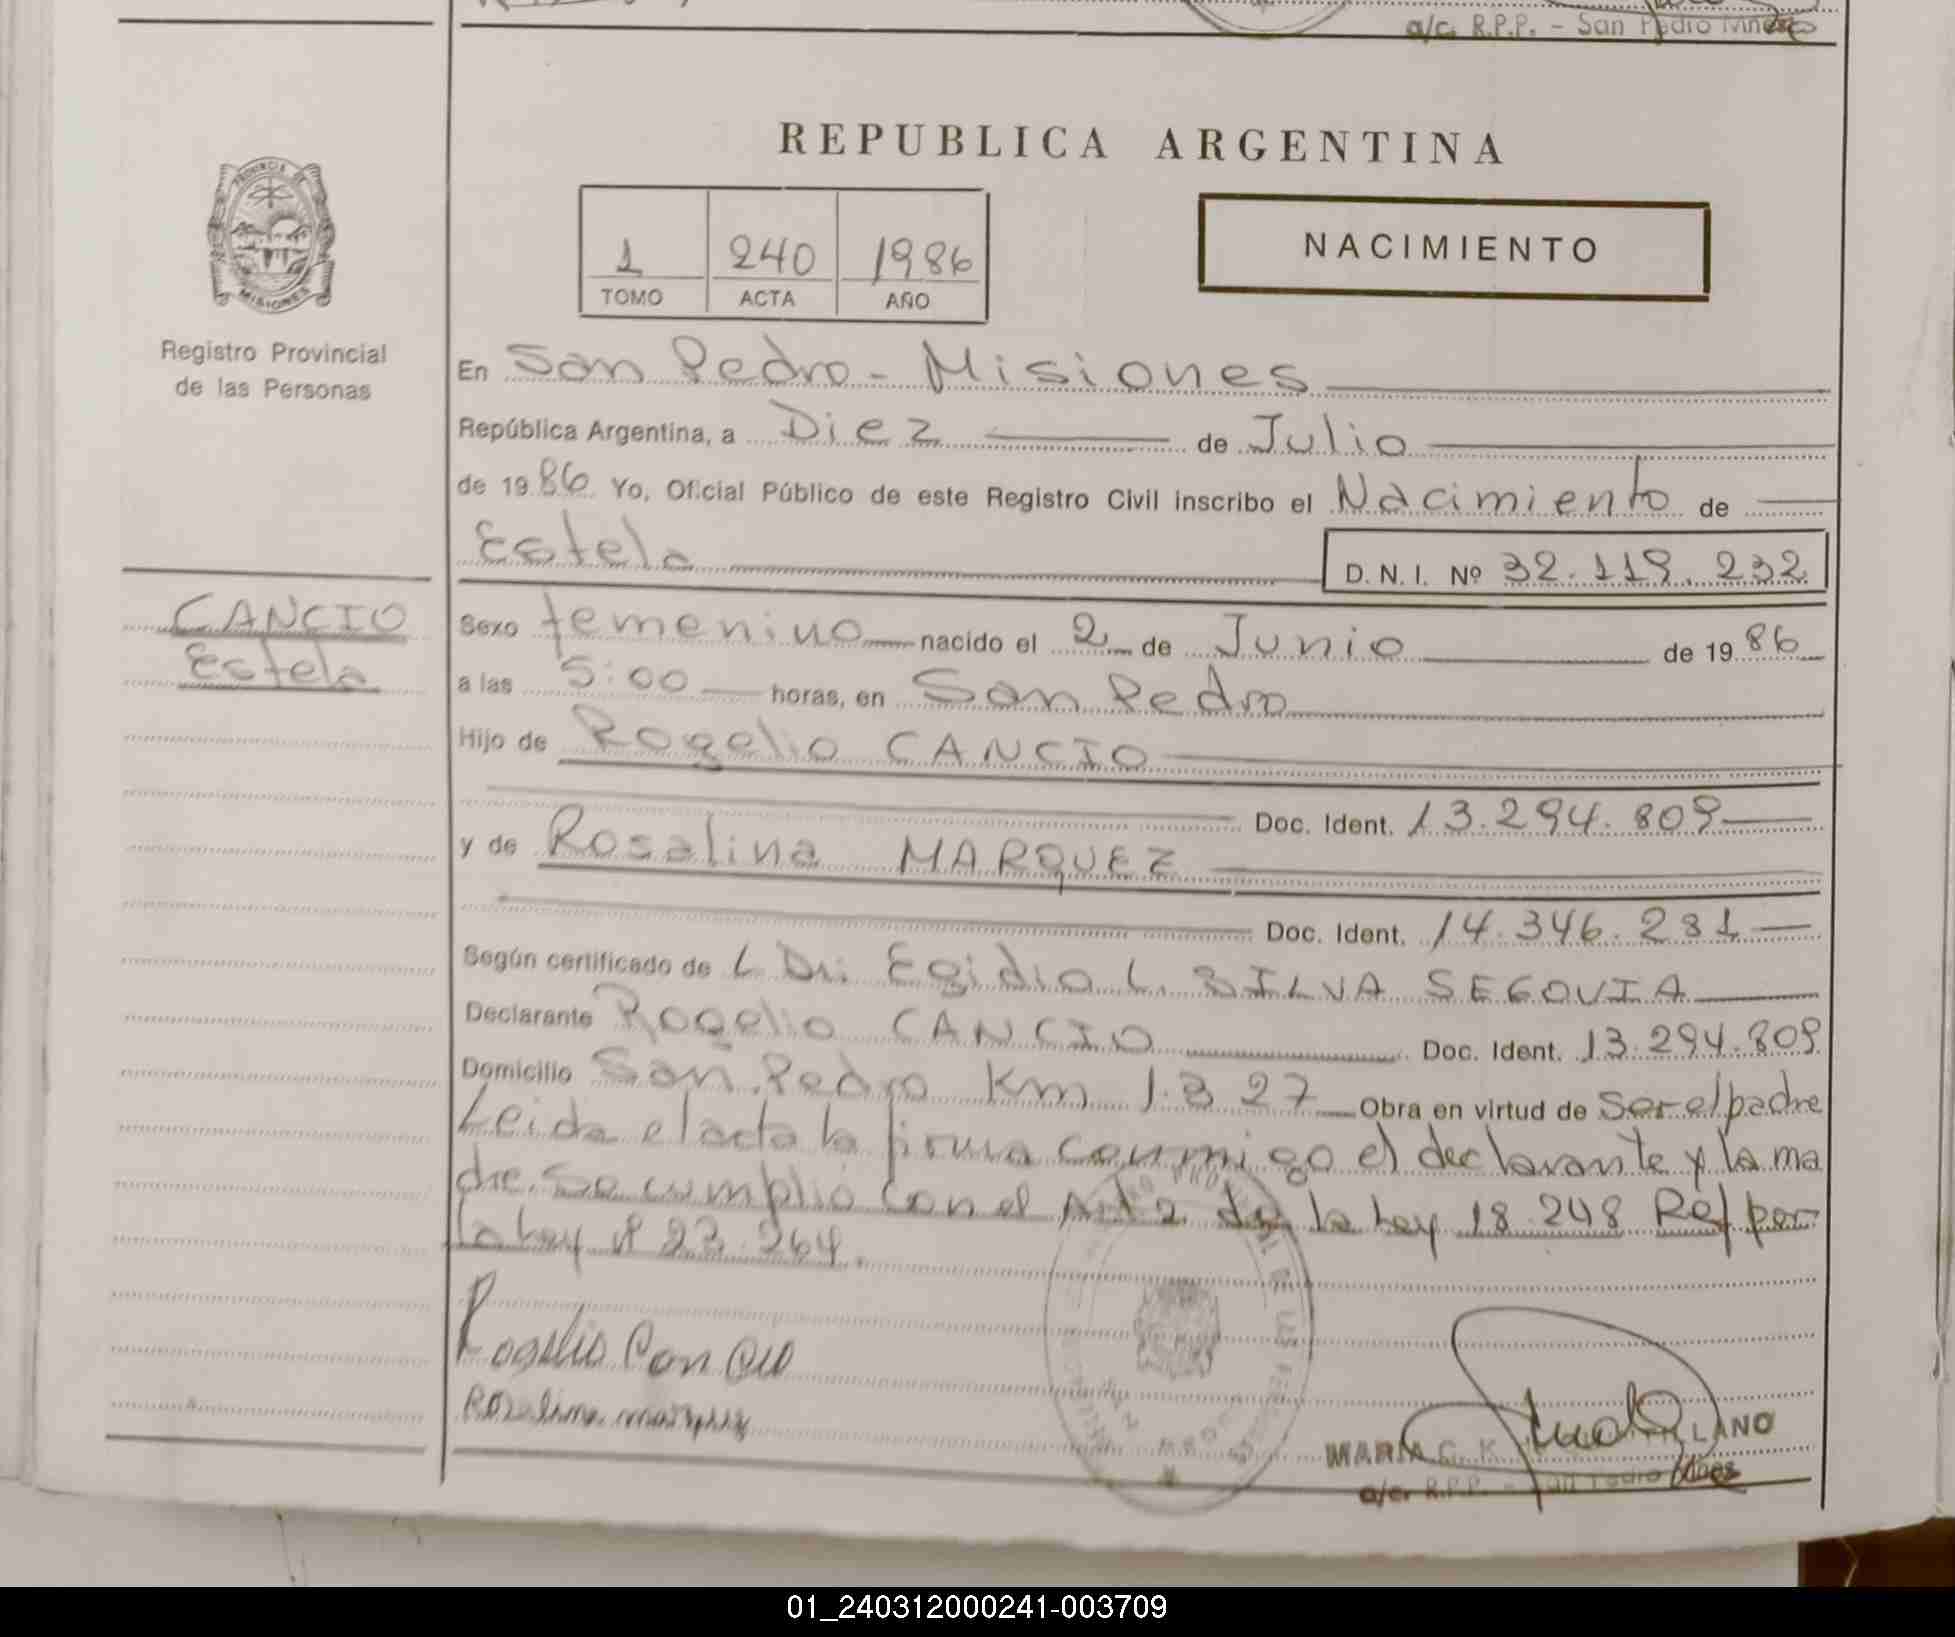 a/c. R.P.P. - San Pedro Mnes
REPUBLICA ARGENTINA
1 240 1986
TOMO ACTA AÑO
NACIMIENTO
PROVINCIA DE
MISIONES
Registro Provincial
de las Personas
En San Pedro - Misiones
República Argentina, a Diez de Julio
de 1986 Yo, Oficial Público de este Registro Civil inscribo el Nacimiento de
Estela D. N. I. Nº 32.119.232
CANCIO
Estela
Sexo femenino nacido el 2 de Junio de 1986
a las 5:00 horas, en San Pedro
Hijo de Rogelio CANCIO
Doc. Ident. 13.294.809
y de Rosalina MARQUEZ
Doc. Ident. 14.346.231
Según certificado de L Dr. Egidio L. SILVA SEGOVIA
Declarante Rogelio CANCIO Doc. Ident. 13.294.809
Domicilio San Pedro Km 1.327 Obra en virtud de ser el padre
Leida el acta la firma conmigo el declarante y la ma
dre. Se cumplió con el Art 2 de la Ley 18.248 Ref por
la Ley Nº 23.264.
Rogelio Cancio
Rosalina marquez
MARIA C. K.
a/c. R.P.P. - San Pedro Mnes
01_240312000241-003709